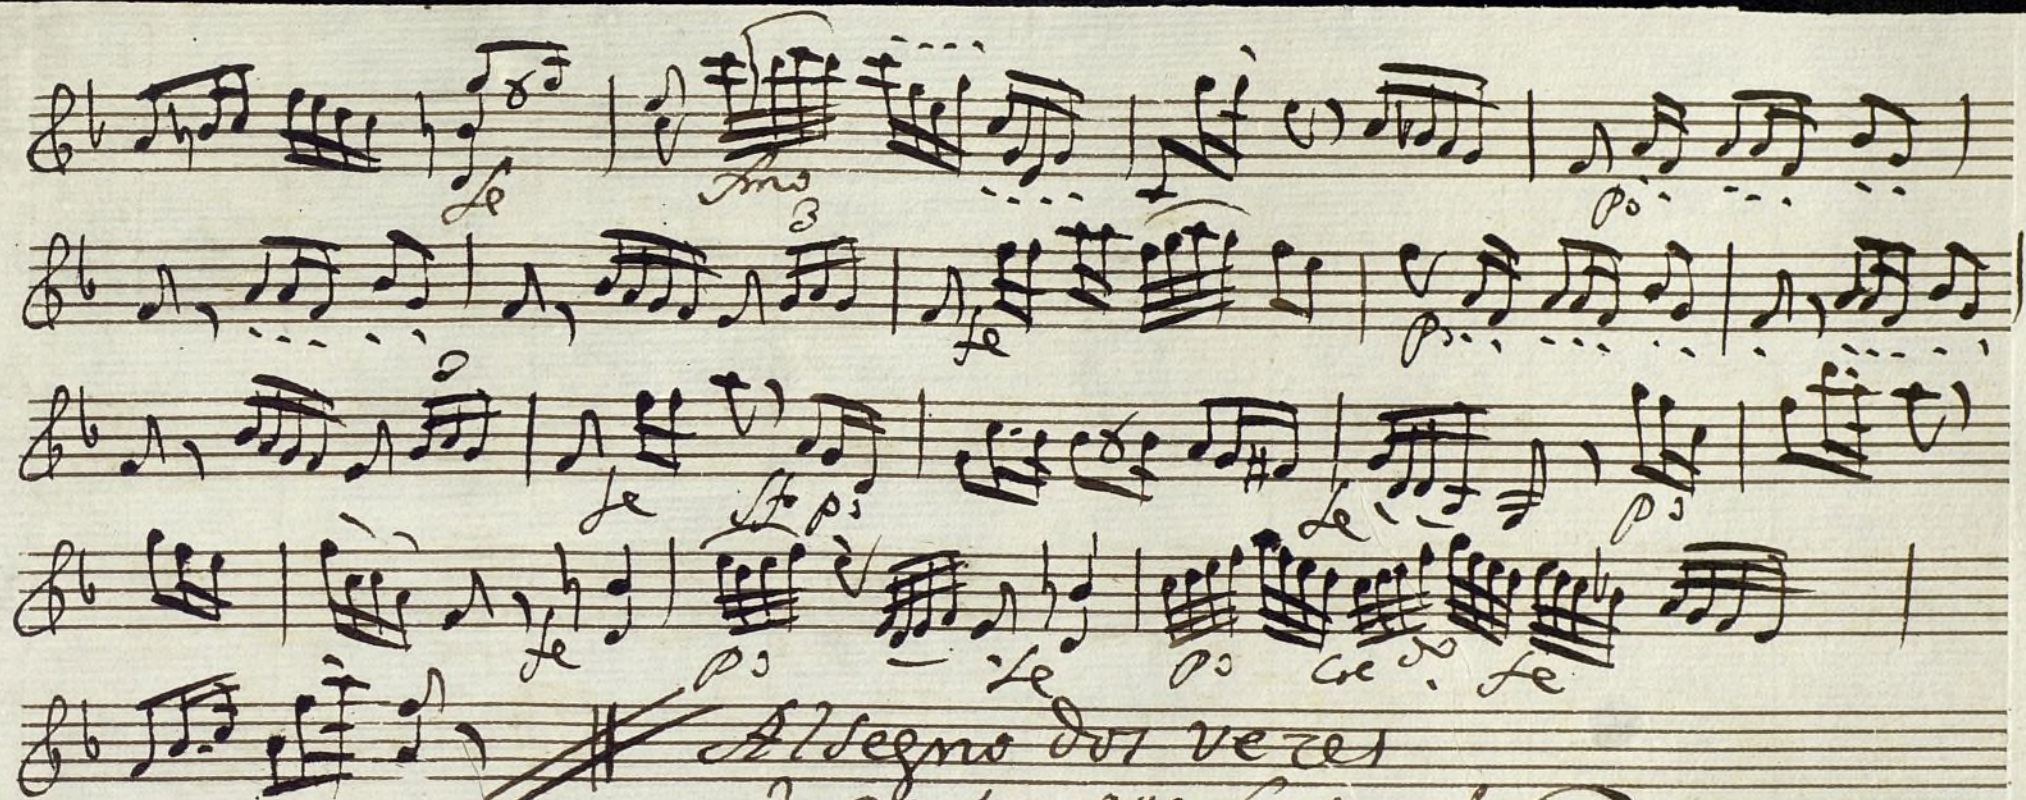 fe fmo po
3
fe po
fe sf po fe po
fe po fe po cre do fe
Al Segno dos veces